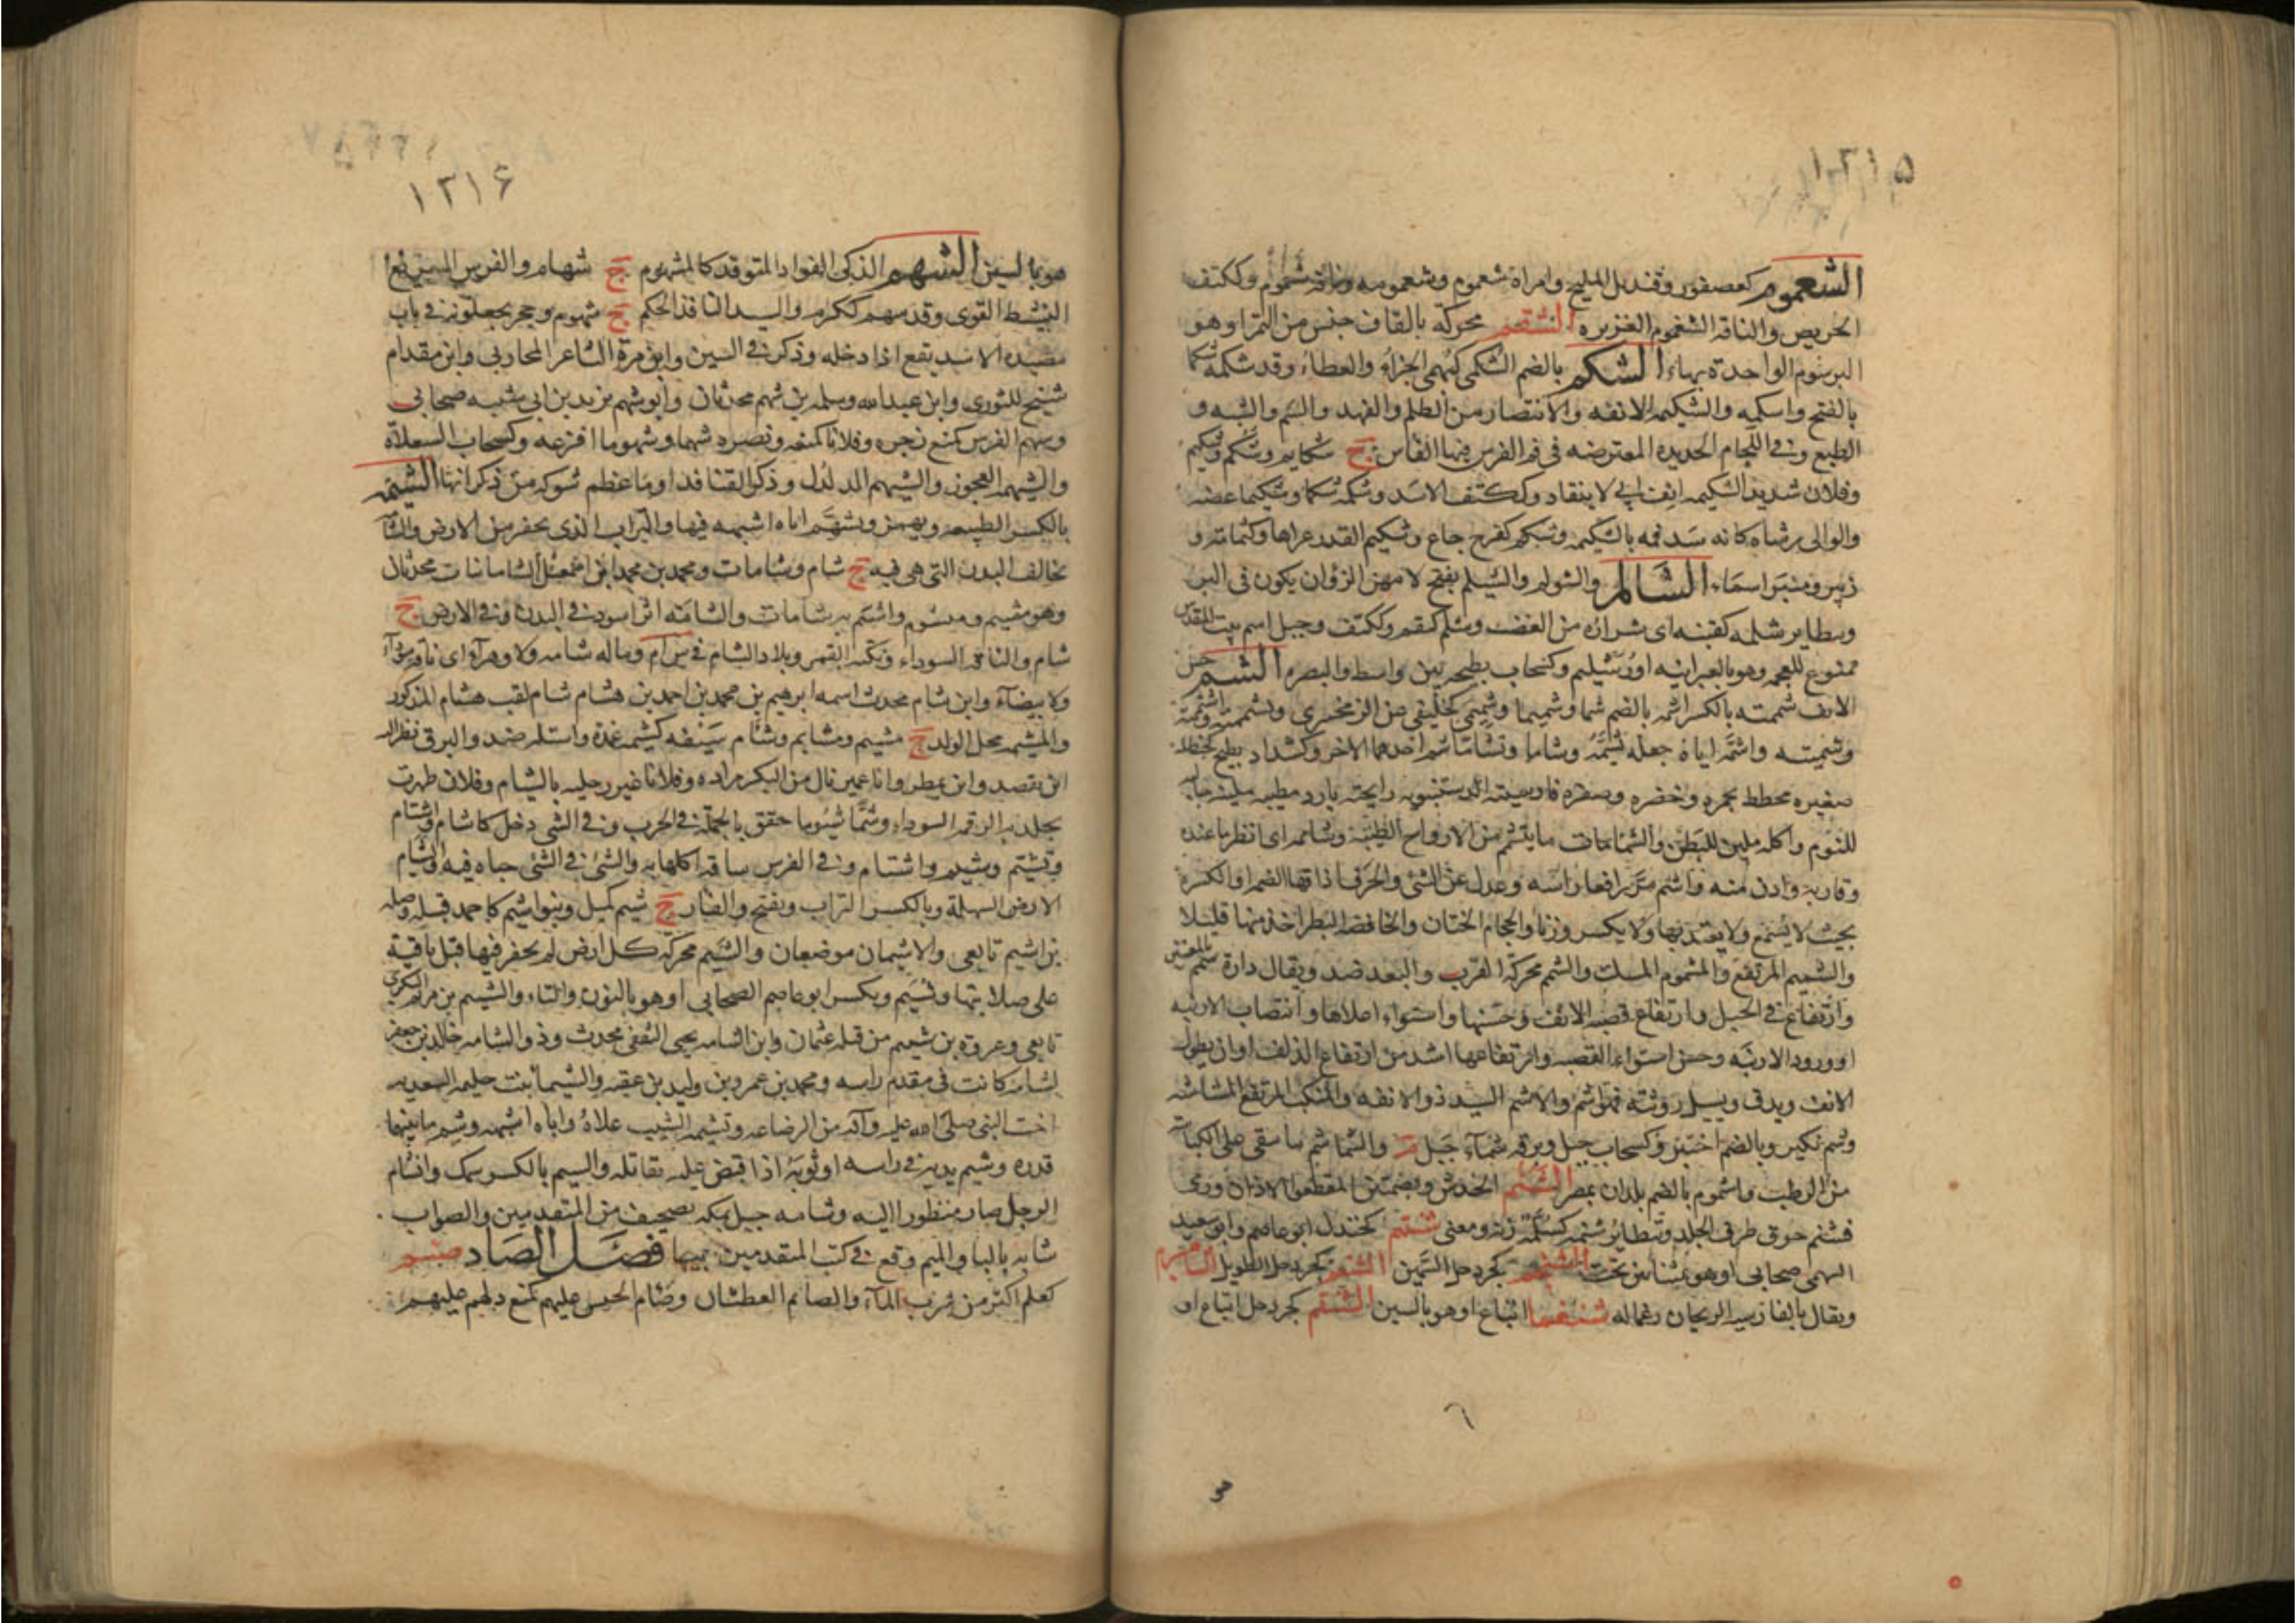 ١٢١٥
الشعموم كعصفور وقنديل المليح وامراة شعموم وشعمومه وناقة شغموم وككتف
الحريص والناقه الشغموم الغزيره الشقم محركة بالقاف جنس من التمر او هو
البرشوم الواحدة بهاء الشكم بالضم الشكمى كبهمى الجزاء والعطاء وقد شكمه شكما
بالفتح واشكمه والشكيمه الانفه والانتصار من الظلم والعهد والشم والشبه و
الطبع وفى اللجام الحديده المعترضه فى فم الفرس فيها الفاس ج شكايم وشكم وشكيم
وفلان شديد الشكيمه انف ابى لا ينقاد وككتف الاسد وشكمه شكما وشكيما عضه
والوالى رشاه كانه سد فمه بالشكيمه وشكم كفرح جاع وشكيم القدر عراها وكثمامة و
زبير ومنبر اسماء الشالم والشولم والشيلم بفتح لامهن الزؤان يكون فى البر
ويطاير شلمه كقنبه اى شراره من الغضب وشلم كبقم وككتف وجبل اسم بيت المقدس
ممنوع للعجمه وهو بالعبرانيه اورشليم وكسحاب بطيحه بين واسط والبصره الشم حس
الانف شممته بالكسر اشمه بالضم شما وشميما وشميمى كخليفى عن الزمخشرى وتشممته واشتممته
وشممته واشمه اياه جعله يشمه وشاما وتشاما شم احدهما الاخر وكشداد بطيخ كحنظله
صغيره مخطط بحمره وخضره وصفره فارسيته الدستنبويه رايحته بارد مطيبه ملينه جالبه
للنوم واكله ملين للبطن والشمامات ما يتشمم من الارواح الطيبة وشاممه اى انظر ما عنده
وقاربه وادن منه واشم مر رافعا راسه وعدل عن الشئ والحرف اذاقها الضم او الكسرة
بحيث لا يسمع ولا يعتد بها ولا يكسر وزنا والحجام الختان والخافضه البظر اخذ منها قليلا
والشميم المرتفع والمشموم المسك والشمم محركة القرب والبعد ضد ويقال داره شمم بالمعنيين
وارتفاع فى الجبل وارتفاع قصبه الانف وحسنها واستواء اعلاها وانتصاب الارنبه
او ورود الارنبه وحسن استواء القصبه وارتفاعها اشد من ارتفاع الذلف او ان يطول
الانف ويدق ويسيل روثته فهو اشم والاشم السيد ذو الانفه والمنكب المرتفع المشاشه
وشم تكبر وبالضم اختبر وكسحاب جبل وبرقه شماء جبل م والشماشم ما يبقى على الكباسه
من الرطب واشموم بالضم بلدان بمصر الشنم الخدش وبضمتين المقطعوا الاذان ورمى
فشنم خرق طرف الجلد وتطاير شنمه كسلمة زنه ومعنى شنتم كجندل ابو عاصم وابو سعيد
السهمى صحابى او هو عشاين تحت الشنخم كجردحل السمين الشنعم كجردحل الطويل الشاهسفرم
ويقال بالفارسيه الريحان رغما له شنغما اتباع او هو بالسين الشنقم كجردحل اتباع او
١٢١۶
هو بالسين الشهم الذكى الفواد المتوقد كالمشهوم ج شهام والفرس السريع
النشيط القوى وقد شهم ككرم والسيد النافذ الحكم ج شهوم وحجر يجعلونه فى باب
مصيده الاسد يقع اذا دخله وذكر فى السين وابن مرة الشاعر المحاربى وابن مقدام
شيخ للثورى وابن عبدالله وسلمه بن شهم محدثان وابو شهم يزيد بن ابى شيبه صحابى
وشهم الفرس كمنع زجره وفلانا كمنعه ونصره شهما وشهوما افزعه وكسحاب السعلاة
والشيهمه العجوز والشيهم الدلدل وذكر القنافد او ما عظم شوكه من ذكرانها الشيمه
بالكسر الطبيعه ويهمز وتشيم اباه اشبهه فيها والتراب الذى يحفر من الارض والشامه
تخالف البدن التى هى فيه ج شام وشامات ومحمد بن محمد ابن اسمعيل الشاماتيان محدثان
وهو مشيم ومشوم واشيم به شامات والشامه اثر اسود فى البدن وفى الارض ج
شام والناقه السوداء ونكته القمر وبلاد الشام فى ش ا م وماله شامه ولا زهرآء اى ناقه سودآء
ولا بيضآء وابن شام محدث اسمه ابرهيم بن محمد بن احمد بن هشام شام لقب هشام المذكور
والمشيمه محل الولد ج مشيم ومشايم وشام سيفه يشيمه غمده واستله ضد والبرق نظر اليه
اين يقصد واين يمطر وابا عمير نال من البكر مراده وفلانا غير رجليه بالشيام وفلان ظهرت
بجلدته الرقمه السوداء وشيما وشيوما حقق بالحملة فى الحرب وفى الشى دخل كاشام واشتام
وتشيم وشيم وانشام وفى الفرس ساقه اكلها به والشئ فى الشئ خباه فيه والشيام
الارض السهلة وبالكسر التراب وتفتح والفار ج شيم كميل وبنو اشيم كاحمد قبيله وصله
بن اشيم تابعى والاشيمان موضعان والشيم محركه كل ارض لم يحفر فيها قبل باقية
على صلابتها وشيم وبكسر ابو عاصم الصحابى او هو بالنون والتاء والشيم بن مريم البكرى
تابعى وعروه بن شييم من قتله عثمان وابن الشامه يحيى الثقفى محدث وذو الشامه خالد بن جعفر
لشامه كانت فى مقدم راسه ومحمد بن عمرو بن وليد بن عقبه والشيما بنت حليمه السعديه
اخت النبى صلى الله عليه وآله من الرضاعه وتشيمه الشيب علاه واباه اشبهه وشيم ما بينهما
قدره وشيم يديه فى راسه او ثوبه اذا قبض عليه يقاتله والشيم بالكسر سمك وانشام
الرجل صار منظورا اليه وشامه جبل بمكه تصحيف من المتقدمين والصواب
شابه بالبا وبالميم وقع فى كتب المتقدمين جميعا فصل الصاد صئم
كعلم اكثر من شرب المآء والصايم العطشان وصئام الحى عليهم كمنع دلهم عليهم